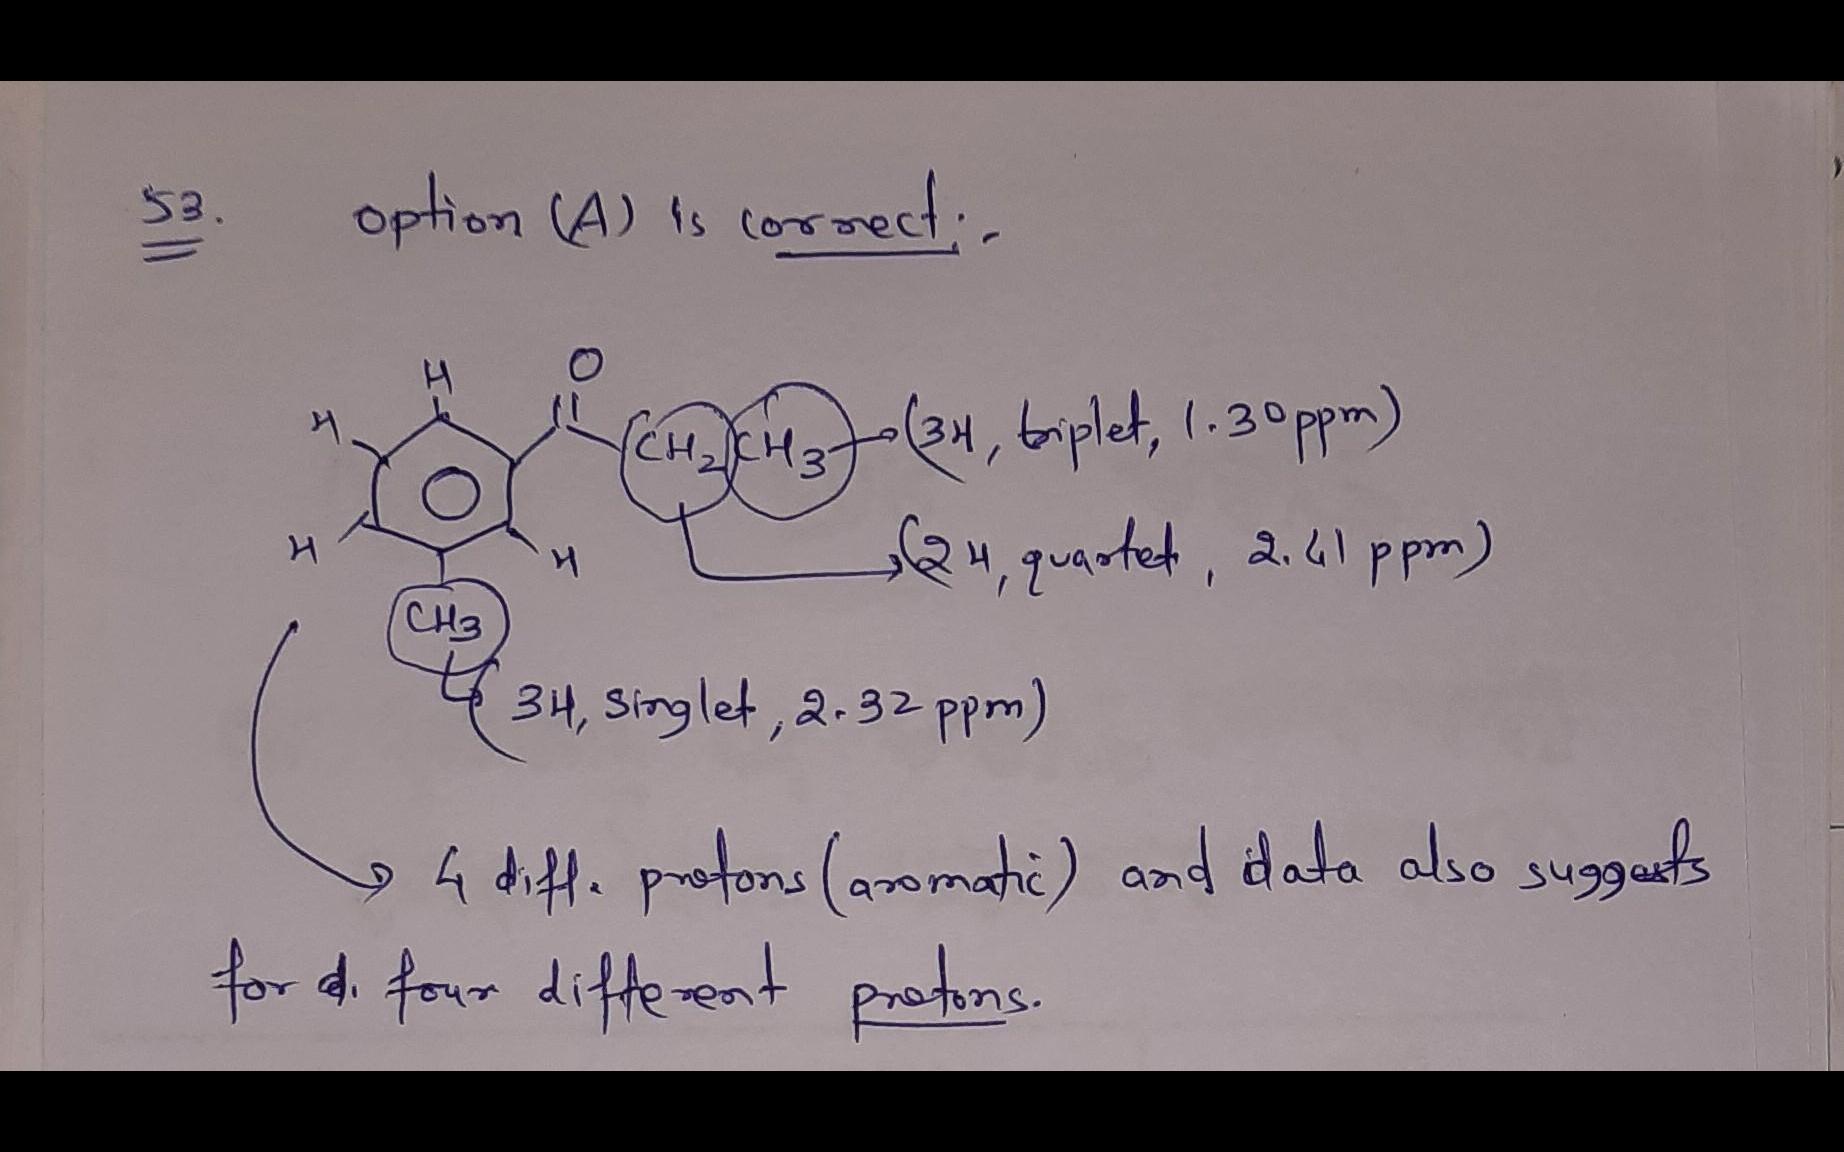 53. option (A) is correct:-
H O
H CH2 CH3 (3H, triplet, 1.30ppm)
H H (2H, quartet, 2.61 ppm)
CH3
(3H, singlet, 2.32 ppm)
4 diff. protons (aromatic) and data also suggests
for d. four different protons.